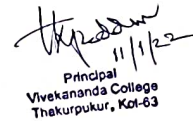 11/1/22
Principal
Vivekananda College
Thakurpukur, Kol-63